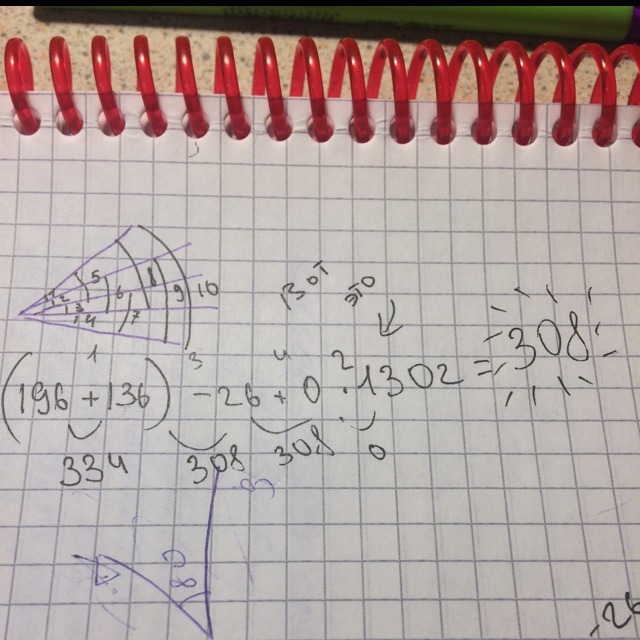 1 2 3 4 5 6 7 8 9 10
вот это
1 3 4 2
(196 + 136) - 26 + 0 : 1302 = 308
334 308 308 0
-26